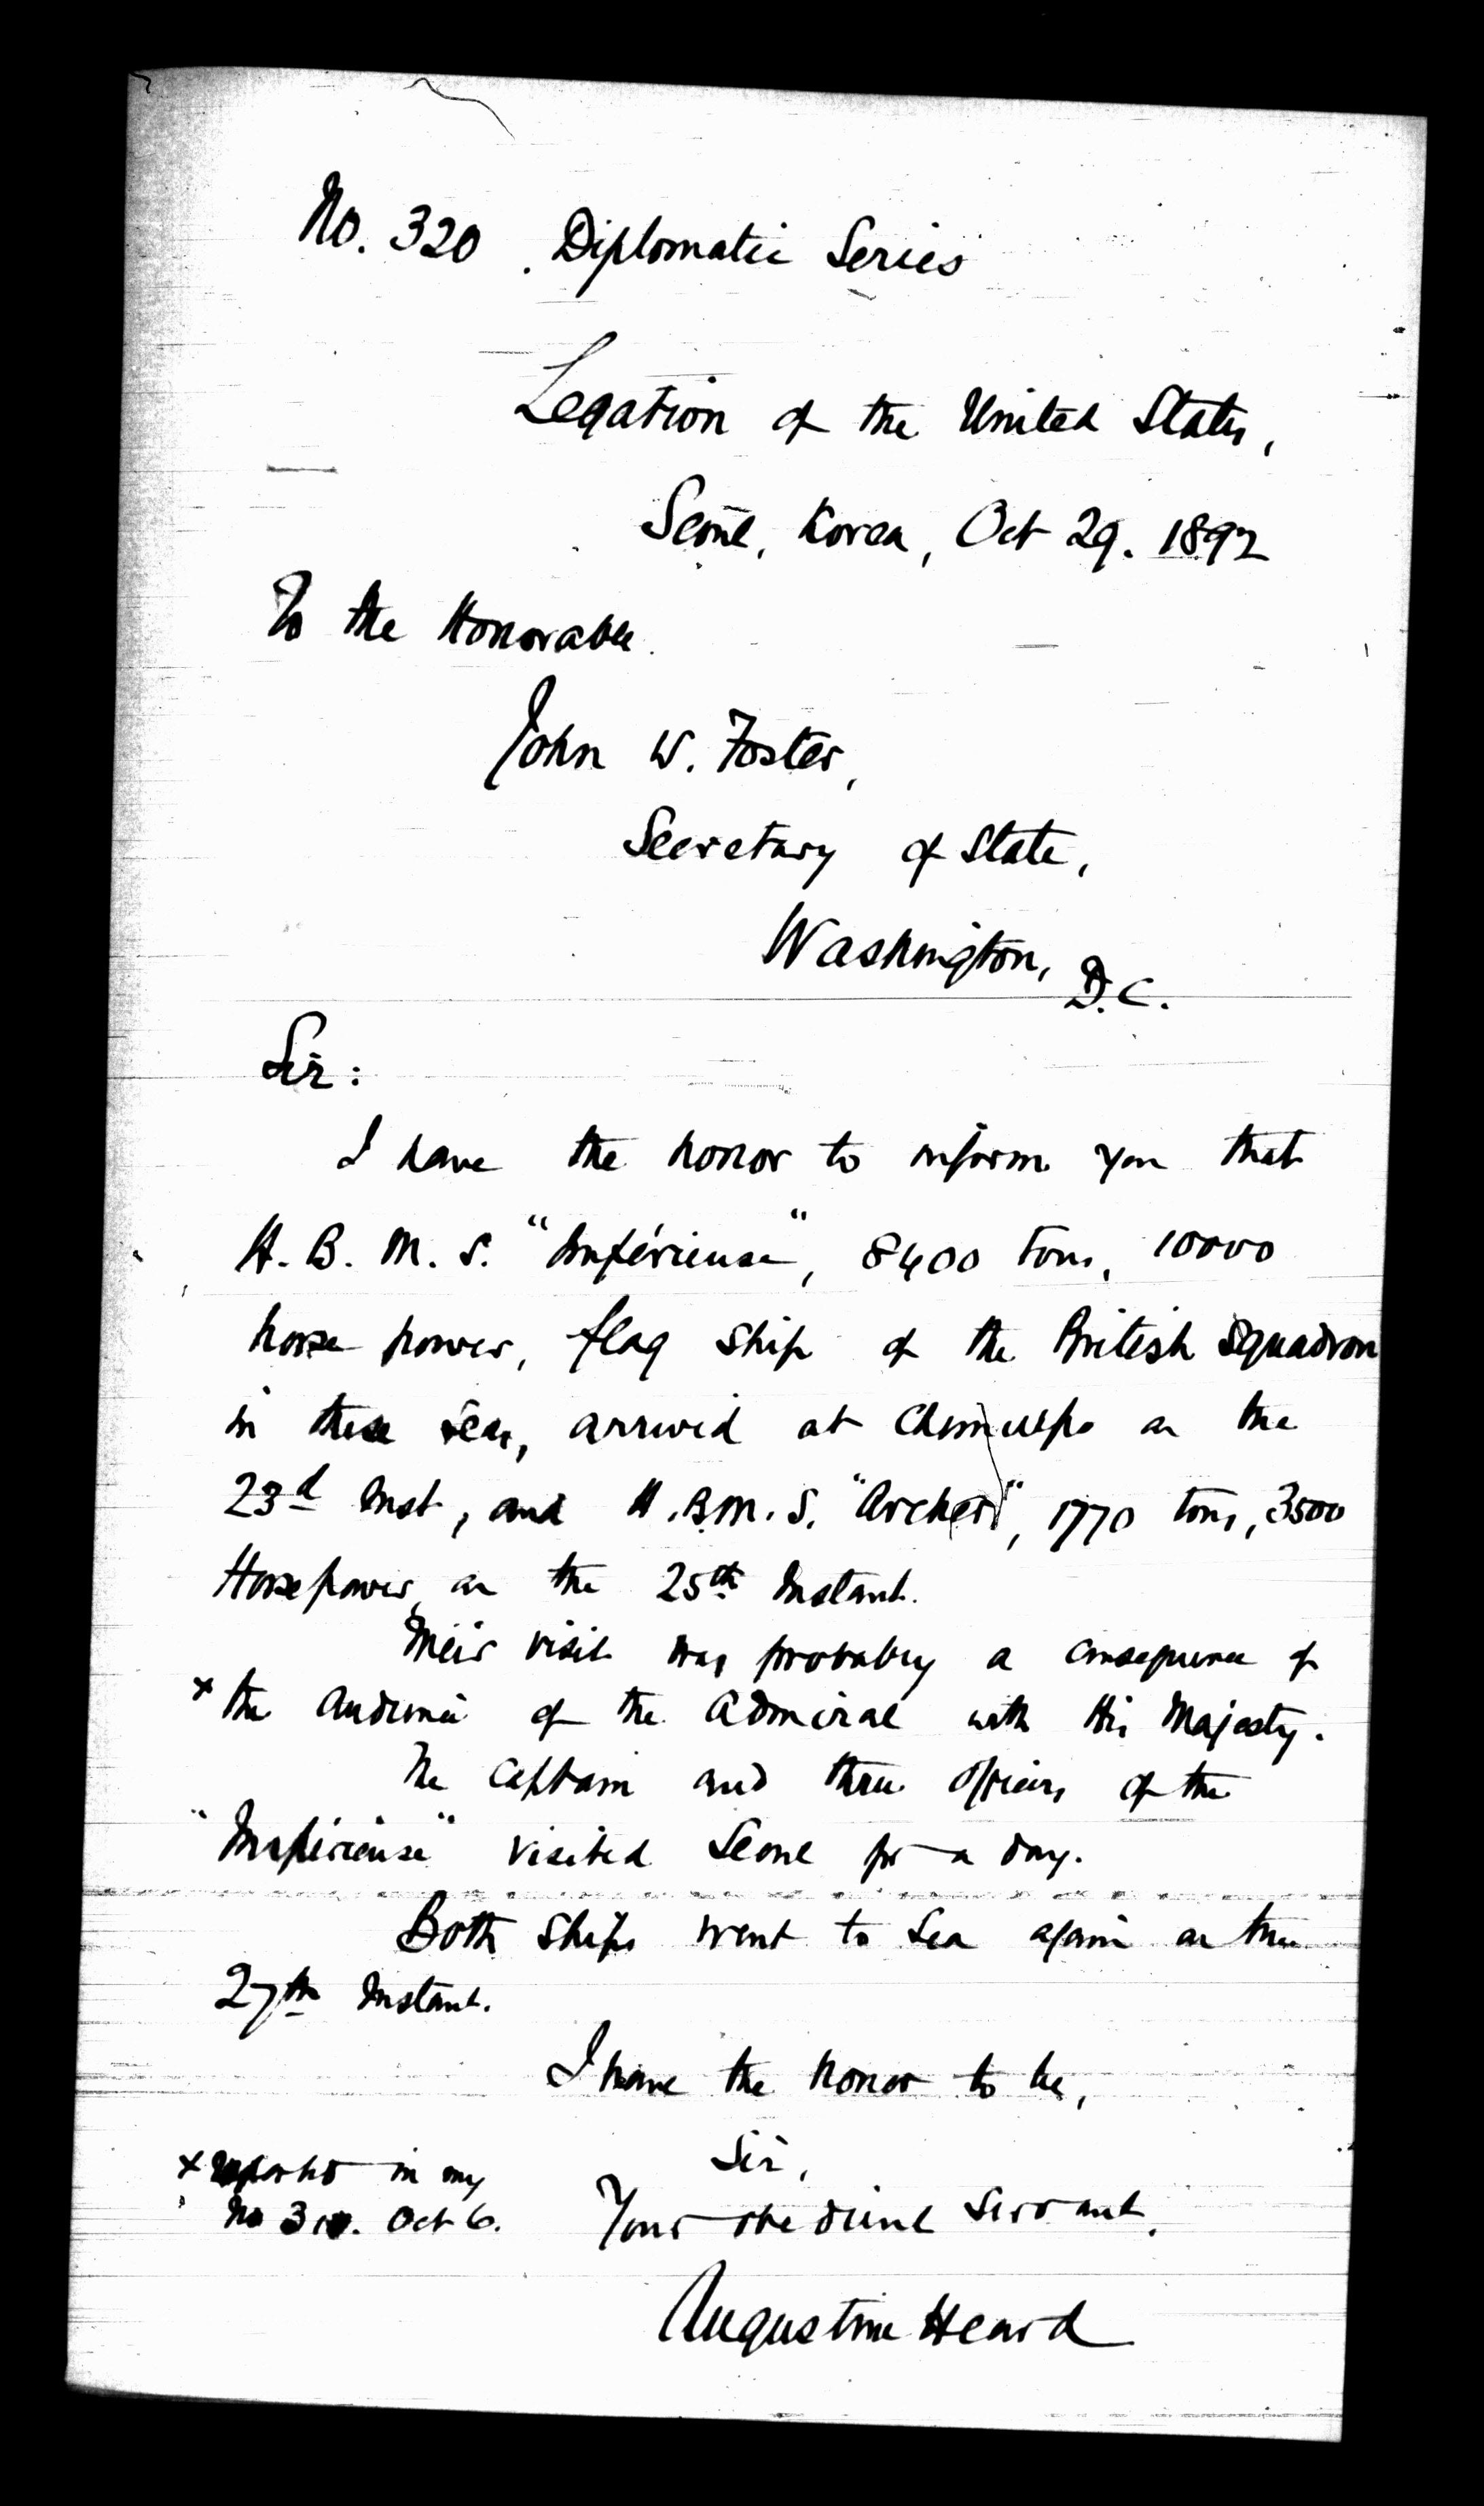 No. 320. Diplomatic Series
Legation of the United States,
Seoul, Korea, Oct 29. 1892
To the Honorable
John W. Foster,
Secretary of State,
Washington, D.C.
Sir:
I have the honor to inform you that
H. B. M. S. "Impérieuse", 8400 tons, 10000
horse power, flag ship of the British Squadron
in these seas, arrived at Chemulpo on the
23d Inst, and H.B.M.S. "Archer", 1770 tons, 3500
Horsepower, on the 25th Instant.
Their visit was probably a consequence of
x the audience of the Admiral with His Majesty.
The Captain and three Officers of the
"Impérieuse" visited Seoul for a day.
Both ships went to Sea again on the
27th Instant.
I have the honor to be,
Sir,
Your obedient Servant,
Augustine Heard
x reported in my
No Oct 6.